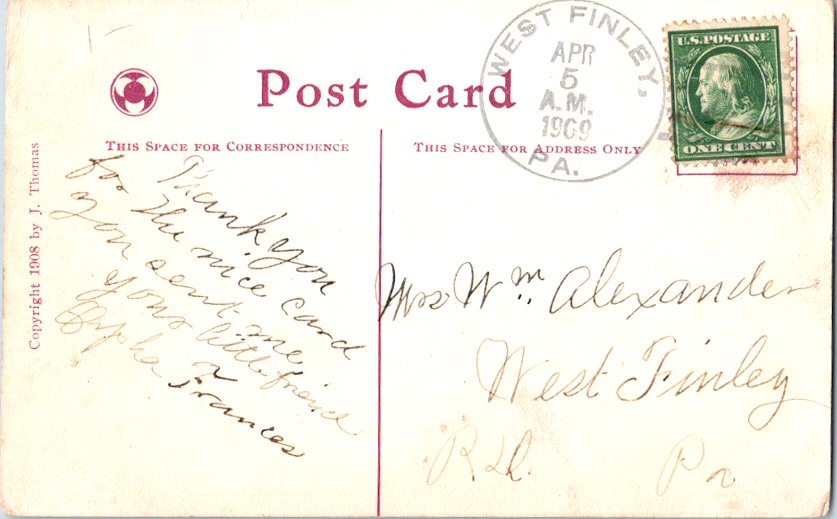 Post Card
THIS SPACE FOR CORRESPONDENCE
THIS SPACE FOR ADDRESS ONLY
Copyright 1908 by J. Thomas
WEST FINLEY,
APR
5
A.M.
1909
PA.
U.S. POSTAGE
ONE CENT
Thank you
for the nice card
you sent me
your little friend
Frances
Mrs Wm. Alexander
West Finley
Pa